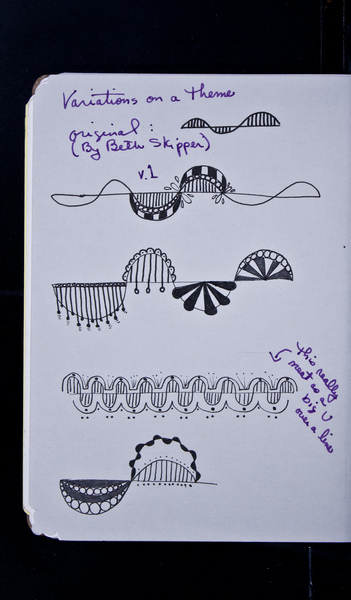 Variations on a theme
original:
(By Beth Skipper)
v.1
this really
neat as a
big U
over a line